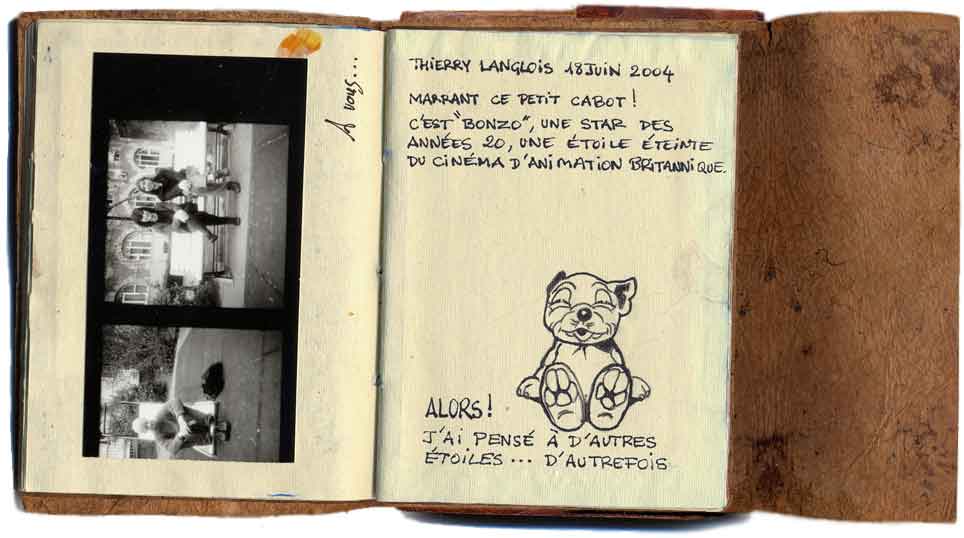 A vous...
THIERRY LANGLOIS 18 JUIN 2004
MARRANT CE PETIT CABOT !
C'EST "BONZO", UNE STAR DES
ANNÉES 20, UNE ÉTOILE ÉTEINTE
DU CINÉMA D'ANIMATION BRITANNIQUE.
ALORS !
J'AI PENSÉ À D'AUTRES
ÉTOILES ... D'AUTREFOIS